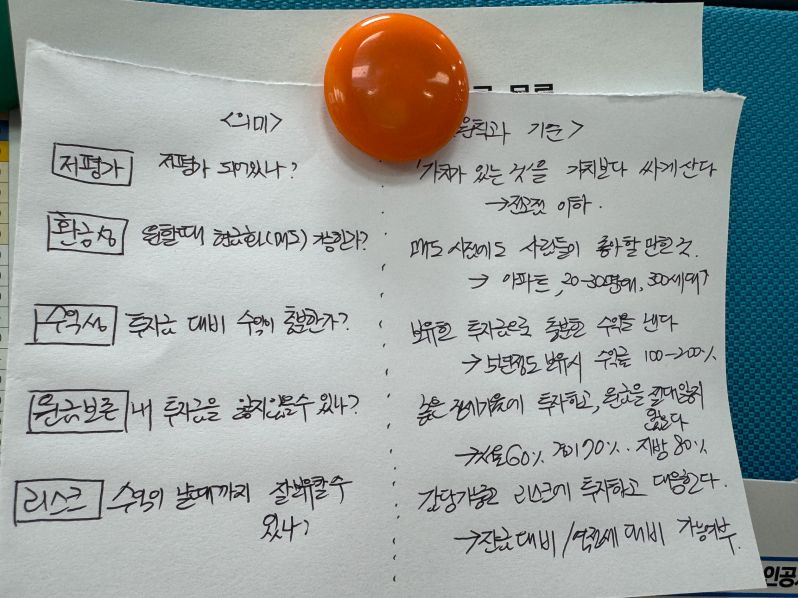 <의미>
저평가 저평가 되어있나?
환금성 원할때 현금화(매도) 가능한가?
수익성 투자금 대비 수익이 충분한가?
원금보존 내 투자금을 잃지않을수 있나?
리스크 수익이 날때까지 잘보유할수
있나?
원칙과 기준>
'가치가 있는 것'을 가치보다 싸게 산다
→전고점 이하.
매도 시점에도 사람들이 좋아할 만한 것.
→ 아파트, 20-30평대, 300세대↑
보유한 투자금으로 충분한 수익을 낸다
→5년정도 보유시 수익률 100-200%
높은 전세가율에 투자하고, 원금을 절대잃지
않는다
→서울60% 경기70%. 지방 80%
감당가능한 리스크에 투자하고 대응한다.
→잔금대비/역전세 대비 가능여부.
인공